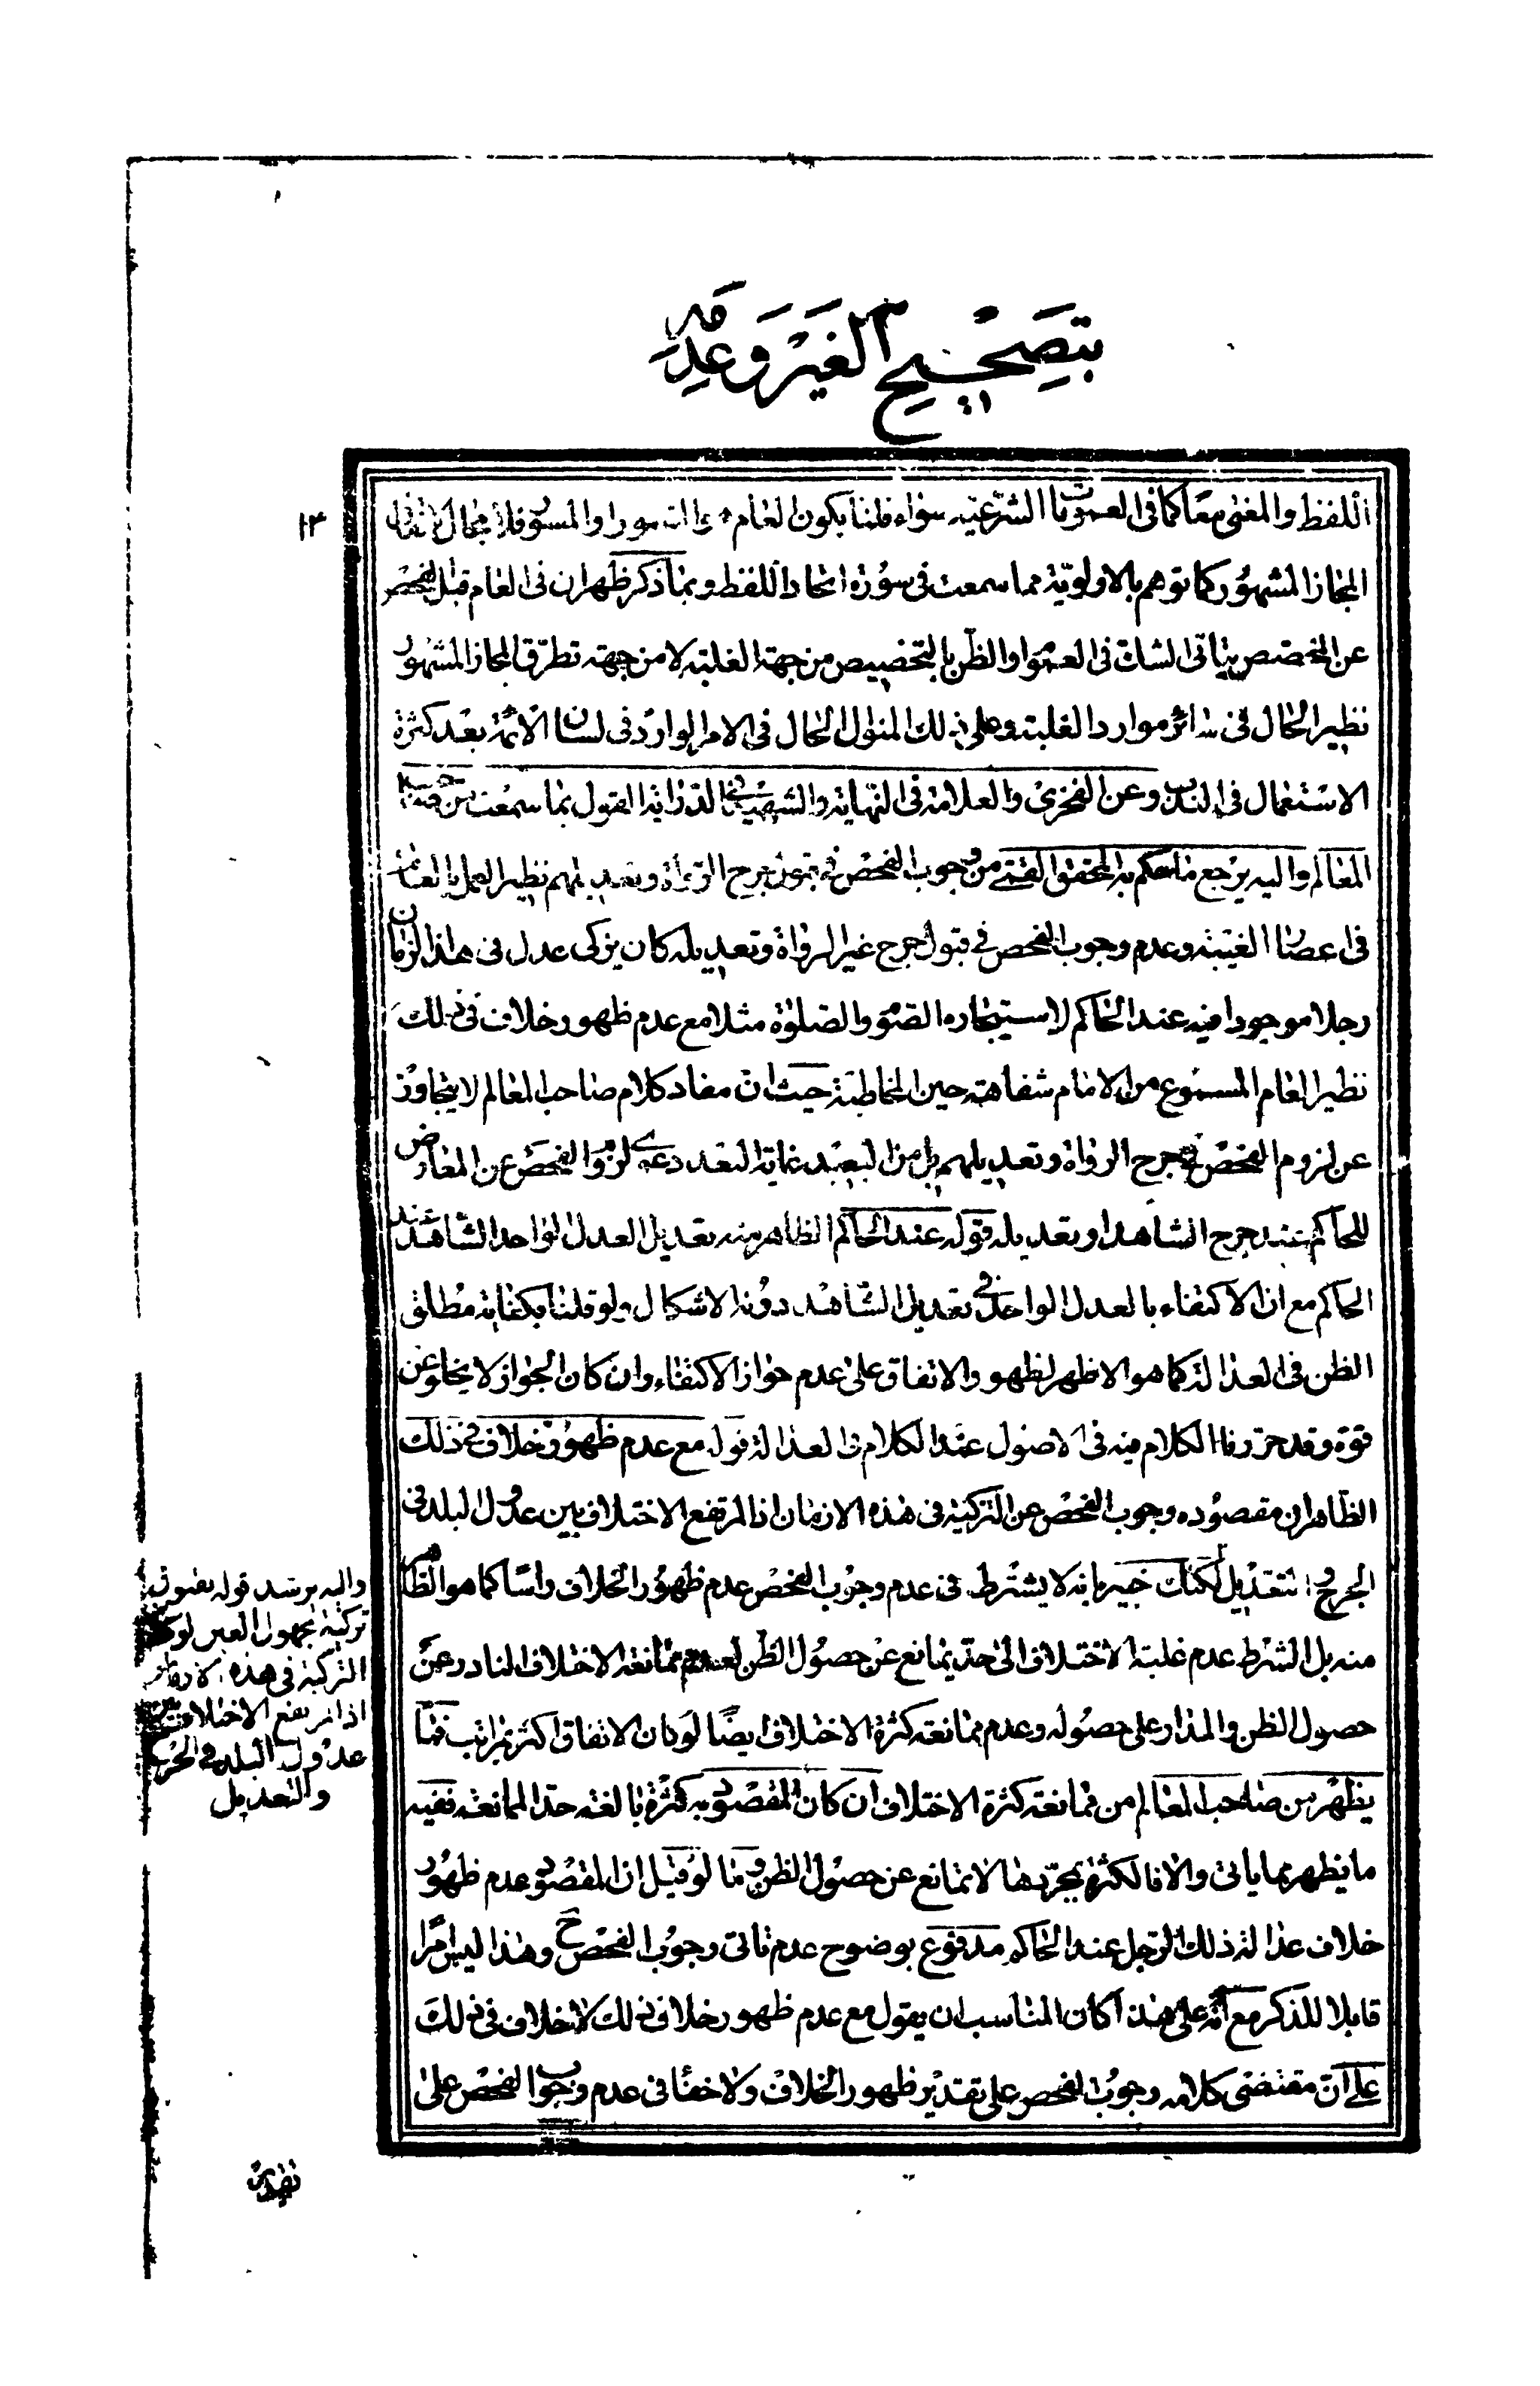 بتصحيح الغير وعدمه
١٣
اللفظ والمغنى معا كما فى العمومات الشرعيّه سواء قلنا بكون العام والمسور فلا مجال
المجاز المشهور كما توهم بالاولويّة مما سمعت فى سورة اتحاد اللفظ وبما ذكر ظهر ان فى العام قبل الفحص
عن المخصص يتاتى الشك فى العموم والظن بالتخصيص من جهة الغلبة لا من جهة تطرق المجاز المشهور
نظير الحال فى سائر موارد الغلبة وعلى ذلك المنوال الحال فى الامر الوارد فى لسان الائمة بعد كثرة
الاستعمال فى الندب وعن الفخرى والعلامة فى النهاية والشهيد فى الدراية القول بما سمعت من صاحب
المعالم واليه يرجع ما حكم به المحقق القمى من وجوب الفحص فى قبول جرح الرواة وتعديلهم نظير العمل بالعام
فى اعصار الغيبة وعدم وجوب الفحص فى قبول جرح غير الرواة وتعديله كان يزكى عدل فى هذا الزمان
رجلا موجودا فيه عند الحاكم لاستيجاره الصوم والصلوة مثلا مع عدم ظهور خلاف فى ذلك
نظير العام المسموع من الامام شفاهة حين المخاطبة حيث ان مفاد كلام صاحب المعالم لا يتجاوز
عن لزوم الفحص فى جرح الرواة وتعديلهم بل من البعيد غاية البعد دعوى لزوم الفحص عن المعارض
للحاكم عند جرح الشاهد او تعديله قوله عند الحاكم الظاهر منه تعديل العدل الواحد الشاهد عند
الحاكم مع ان الاكتفاء بالعدل الواحد فى تعديل الشاهد دونه الاشكال ولو قلنا بكفاية مطلق
الظن فى العدالة كما هو الاظهر لظهور الاتفاق على عدم جواز الاكتفاء وان كان الجواز لا يخلو عن
قوة وقد حررنا الكلام فيه فى الاصول عند الكلام فى العدالة قوله مع عدم ظهور خلاف فى ذلك
الظاهر ان مقصوده وجوب الفحص عن التزكية فى هذه الازمان اذا لم يقع الاختلاف بين عدول البلد فى
الجرح والتعديل لكنك خبير بانه لا يشترط فى عدم وجوب الفحص عدم ظهور الخلاف راسا كما هو الظاهر
منه بل الشرط عدم غلبة الاختلاف الى حد يمانع عن حصول الظن لعدم ممانعة الاختلاف النادر عن
حصول الظن والمدار على حصوله وعدم ممانعة كثرة الاختلاف ايضا لو كان الاتفاق اكثر بمراتب فما
يظهر من صاحب المعالم من ممانعة كثرة الاختلاف ان كان المقصود به كثرة بالغة حد الممانعة ففيه
ما يظهر مما ياتى والا فالكثرة بمجردها لا تمانع عن حصول الظن وما لو قيل ان المقصود عدم ظهور
خلاف عدالة ذلك الرجل عند الحاكم مدفوع بوضوح عدم تاتى وجوب الفحص ح وهذا ليس امرا
قابلا للذكر مع انه على هذا كان المناسب ان يقول مع عدم ظهور خلاف ذلك لا خلاف فى ذلك
على ان مقتضى كلامه وجوب الفحص على تقدير ظهور الخلاف ولا خفاء فى عدم وجوب الفحص على
واليه يرشد قوله بقبول
تزكية مجهول العين لو كان
التزكية فى هذه الازمان
اذا لم يقع الاختلاف بين
عدول البلد فى الجرح
والتعديل
تقدير